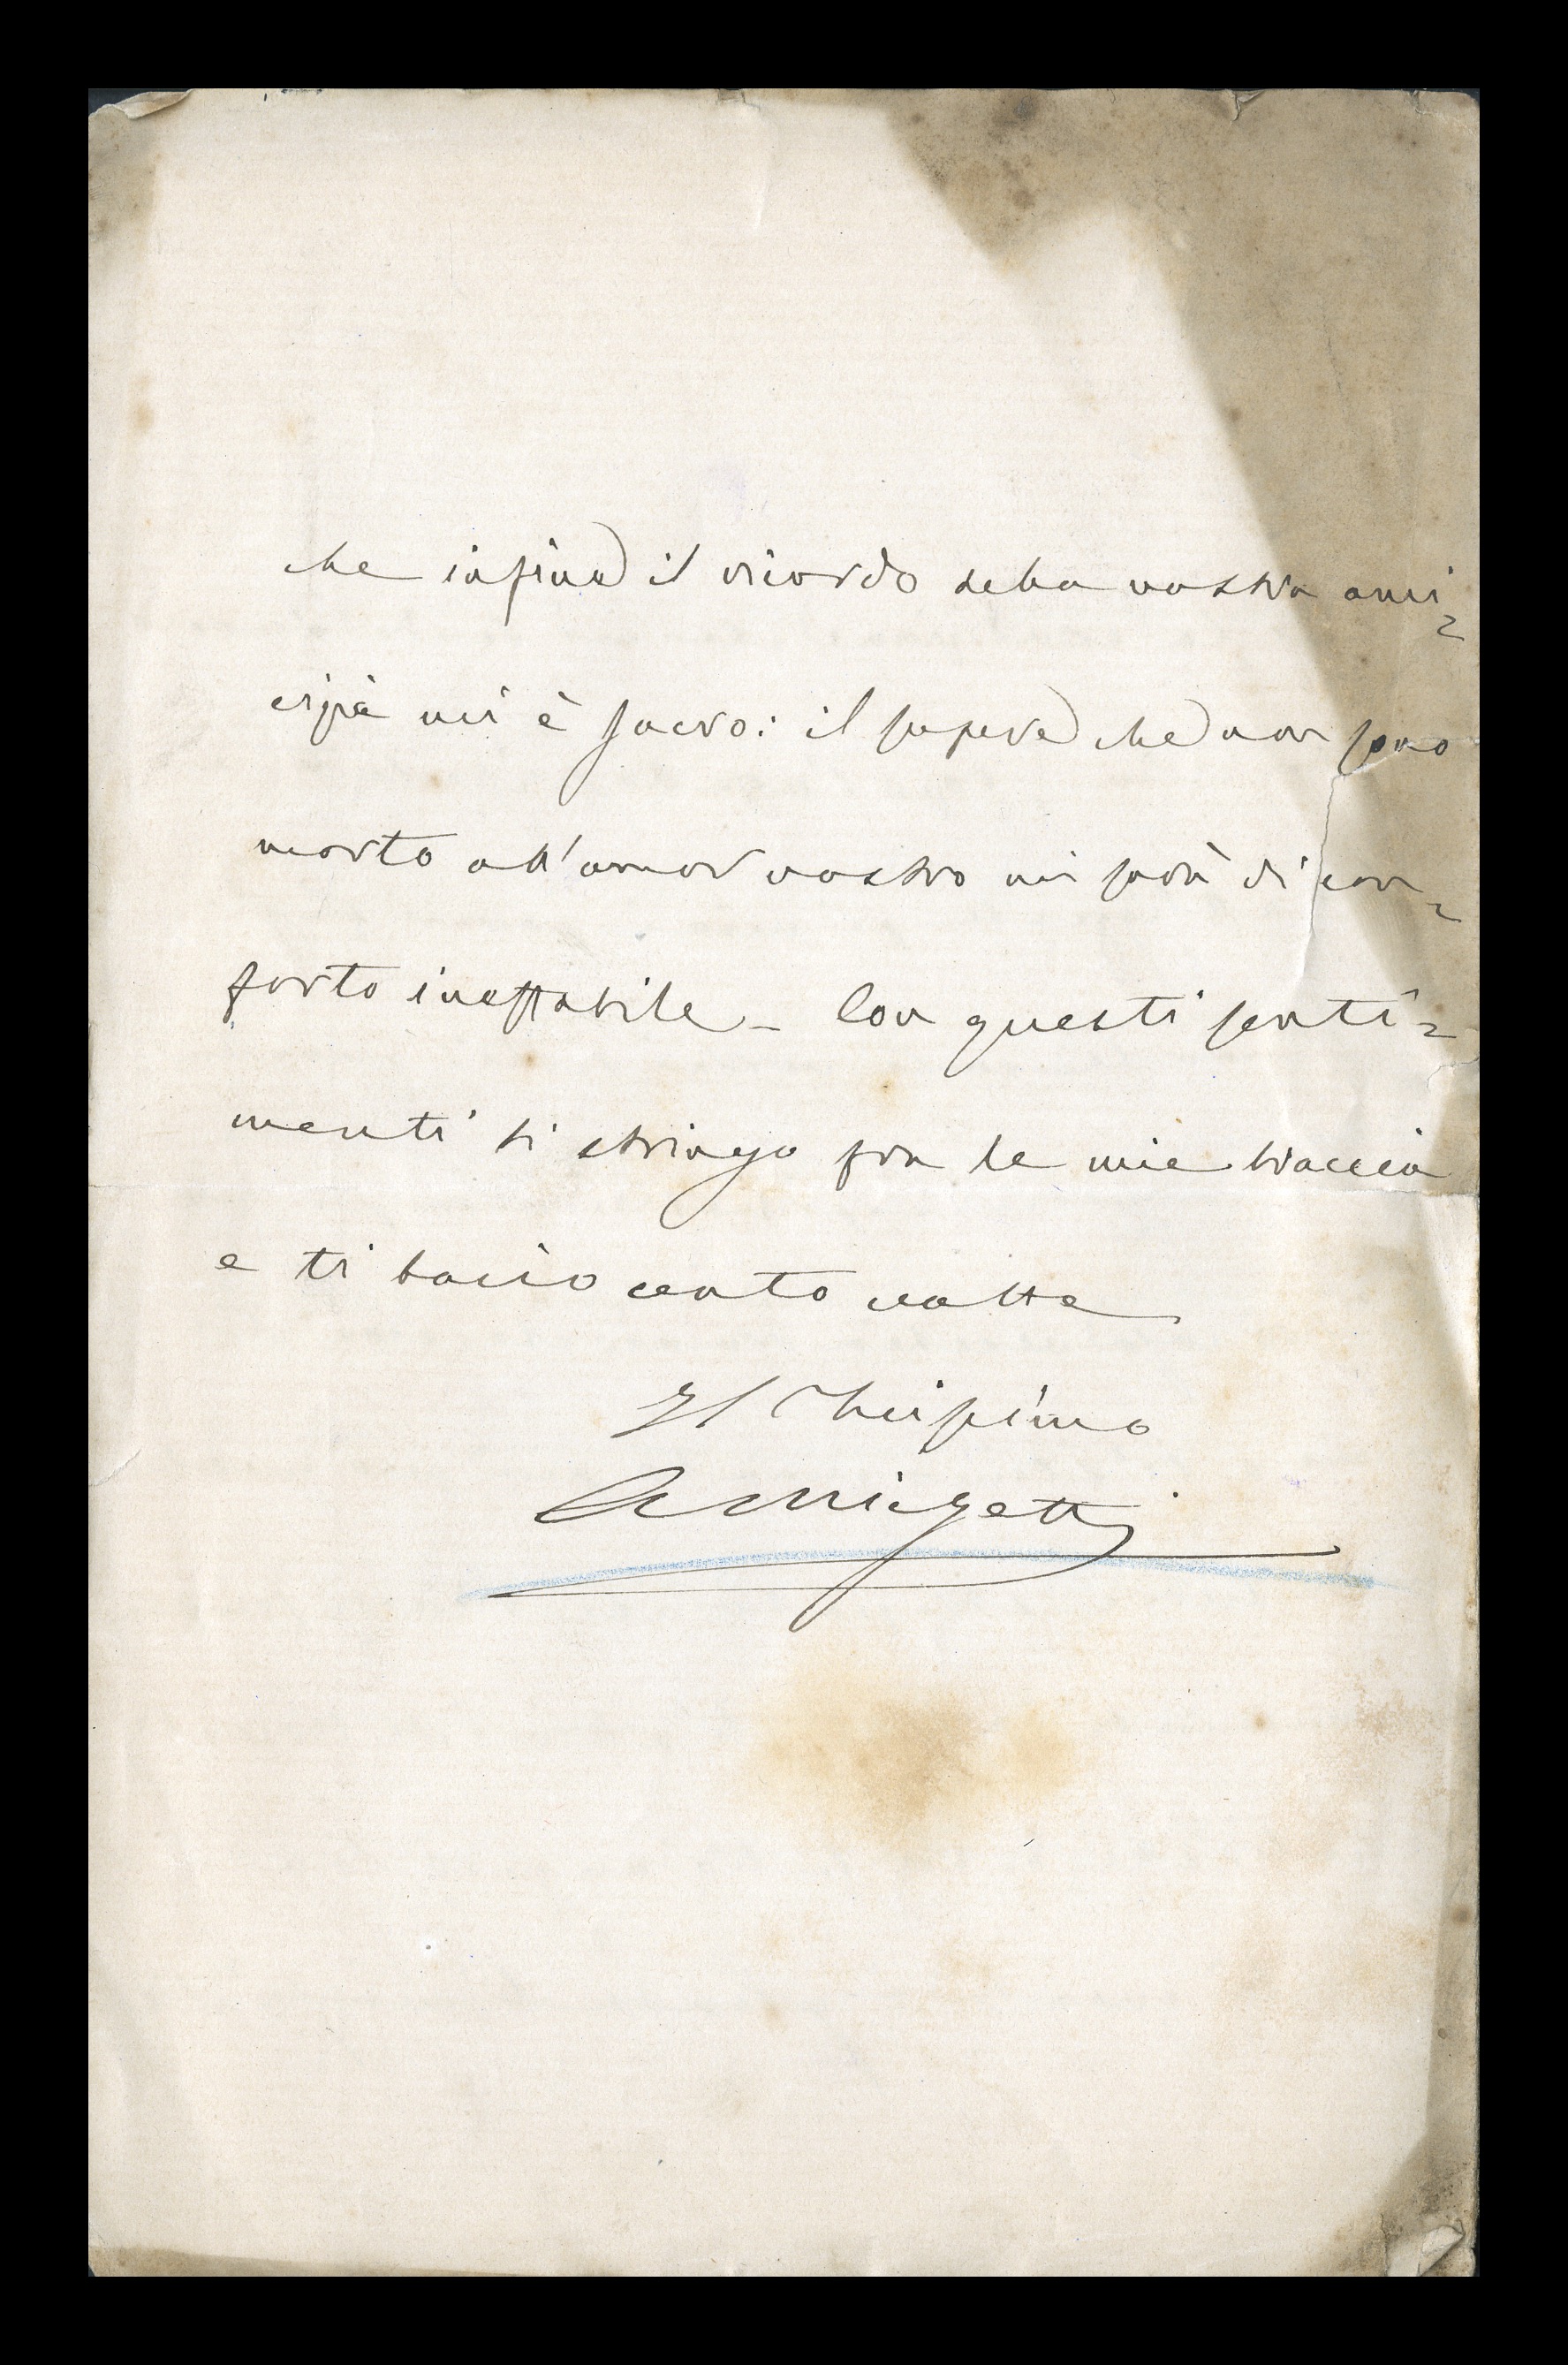 che infino il ricordo della vostra ami=
cizia mi è sacro: il sapere che non sono
morto all'amor vostro mi sarà di con=
forto ineffabile_ Con questi senti=
menti ti stringo fra le mie braccia
e ti bacio cento volte
Il